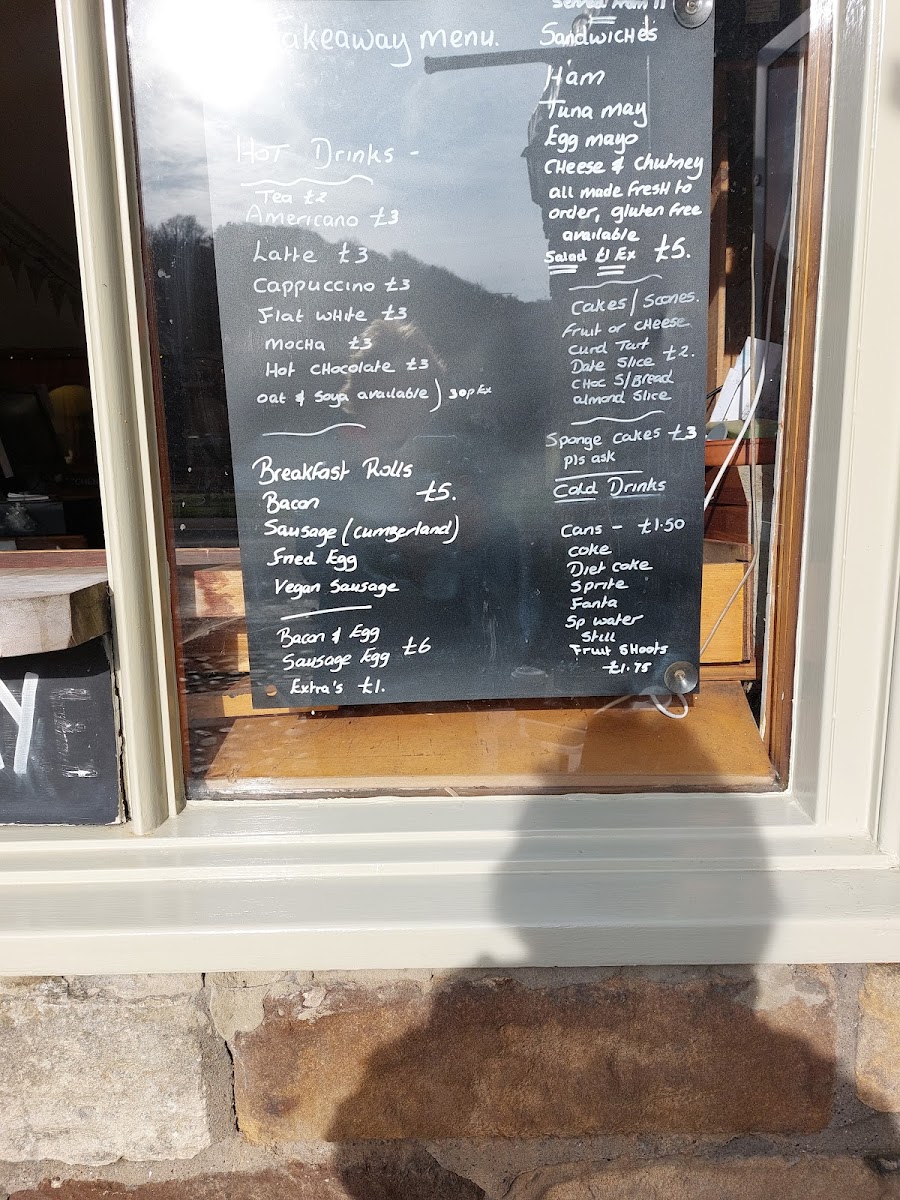 Takeaway menu.
Hot Drinks -
Tea £2
Americano £3
Latte £3
Cappuccino £3
Flat white £3
Mocha £3
Hot chocolate £3
Oat & Soya available) 30p Ex
Breakfast Rolls
Bacon £5.
Sausage (cumberland)
Fried Egg
Vegan Sausage
Bacon & Egg
Sausage Egg £6
Extra's £1.
Served from 11
Sandwiches
Ham
Tuna may
Egg mayo
Cheese & Chutney
all made fresh to
order, gluten free
available
Salad £1 Ex £5.
Cakes / Scones.
Fruit or cheese
Curd Tart
Date Slice £2.
Choc S/Bread
almond Slice
Sponge cakes £3
pls ask
Cold Drinks
Cans - £1.50
Coke
Diet coke
Sprite
Fanta
Sp water
Still
Fruit Shoots
£1.75
Y